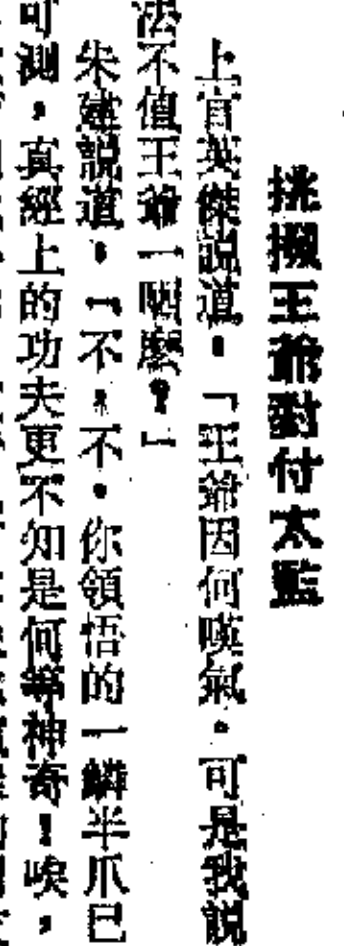 挑撥王爺對付太監
上官英傑説道：「王爺因何嘆氣。可是我説
法不值王爺一哂麽？」
朱建説道：「不，不。你領悟的一鱗半爪已
可測，真經上的功夫更不知是何等神奇！唉，